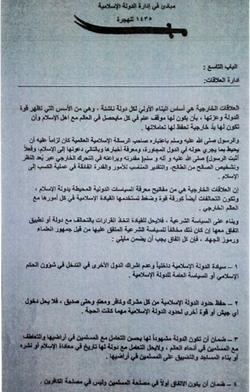 مبادئ في إدارة الدولة الإسلامية
١٤٣٥ للهجرة
الباب التاسع :
إدارة العلاقات:
العلاقات الخارجية هي أساس البناء الأولي لكل دولة ناشئة ، وهي من الأسس التي تظهر قوة
الدولة وعزتها ، بأن يكون لها موقف في كل مايحصل في العالم مع أهل الإسلام وأن
تكون لها يد خارجية تحفظ لها تعاملاتها .
والرسول صلى الله عليه وسلم باعتباره صاحب الرسالة الإسلامية العالمية كان لزاماً عليه أن
يحيط بما يجري حوله في الدول المجاورة، ومعرفة أخبارها وبالتالي دعوتها إلى الإسلام، وفعلاً
أثبت الرسول) صلى الله عليه و آله و سلم( مقدرته وبراعته في التحرك الخارجي عبر بُعد النظر
وتشخيص الصالح من الطالح، والتقدير المناسب للأمور والقوة الفائقة في عملية الكسب إلى
الإسلام.
إن العلاقات الخارجية هي من مفاتيح معرفة السياسات الدولية المحيطة بدولة الإسلام ،
وتكون التحالفات أيضاً كورقة قوة وضغط تستخدمها القيادة الإسلامية في كل أمورها مع
العالم الخارجي .
وبناء على السياسة الشرعية ، فلايحل للقيادة اتخاذ القرارات بالتحالف مع دولة أو تطبيق
اتفاق معها إن كان ذلك مخالفاً للسياسة الشرعية المتفق عليها من قبل جمهور العلماء
ورموز الجهاد ، فإن كل اتفاق يجب أن يضمن مايلي :
١ – سيادة الدولة الإسلامية داخلياً وعدم إشراك الدول الأخرى في التدخل في شؤون الحكم
الإسلامي أو السياسة العامة للدولة الإسلامية.
٢ – حفظ حدود الدولة الإسلامية من كل مشرك وكافر ومعتد وحتى صديق ، فلا يحل دخول
أي جيش أو قوة أخرى لحدود الدولة الإسلامية مهما كانت الحجة .
٣ – ضمان أن تكون الدولة المتعهد لها بحسن التعامل مع المسلمين في أراضيها والتعاطف
مع المسلمين في أنحاء العالم ، ولايحل التعامل مع دولة لها تاريخ في معاداة الإسلام أو نشره
أو بناء المساجد والتضييق على المسلمين في أراضيها .
٤ – ضمان أن يكون الاتفاق أولاً في مصلحة المسلمين وليس في مصلحة الكافرين .